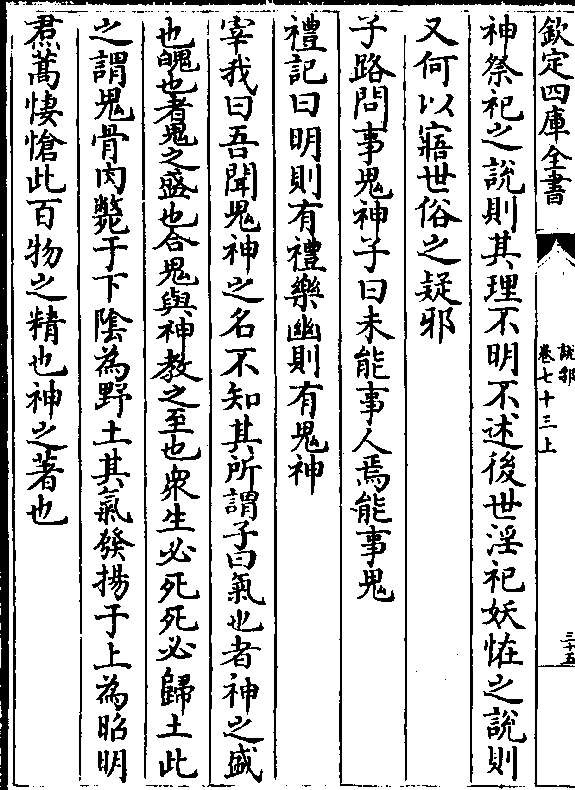 欽定四庫全書
說郛
卷七十三上
三十五
神祭祀之說則其理不明不述後世淫祀妖怪之說則
又何以寤世俗之疑邪
子路問事鬼神子曰未能事人焉能事鬼
禮記曰明則有禮樂幽則有鬼神
宰我曰吾聞鬼神之名不知其所謂子曰氣也者神之盛
也魄也者鬼之盛也合鬼與神教之至也衆生必死死必歸土此
之謂鬼骨肉斃于下陰為野土其氣發揚于上為昭明
焄蒿悽愴此百物之精也神之著也